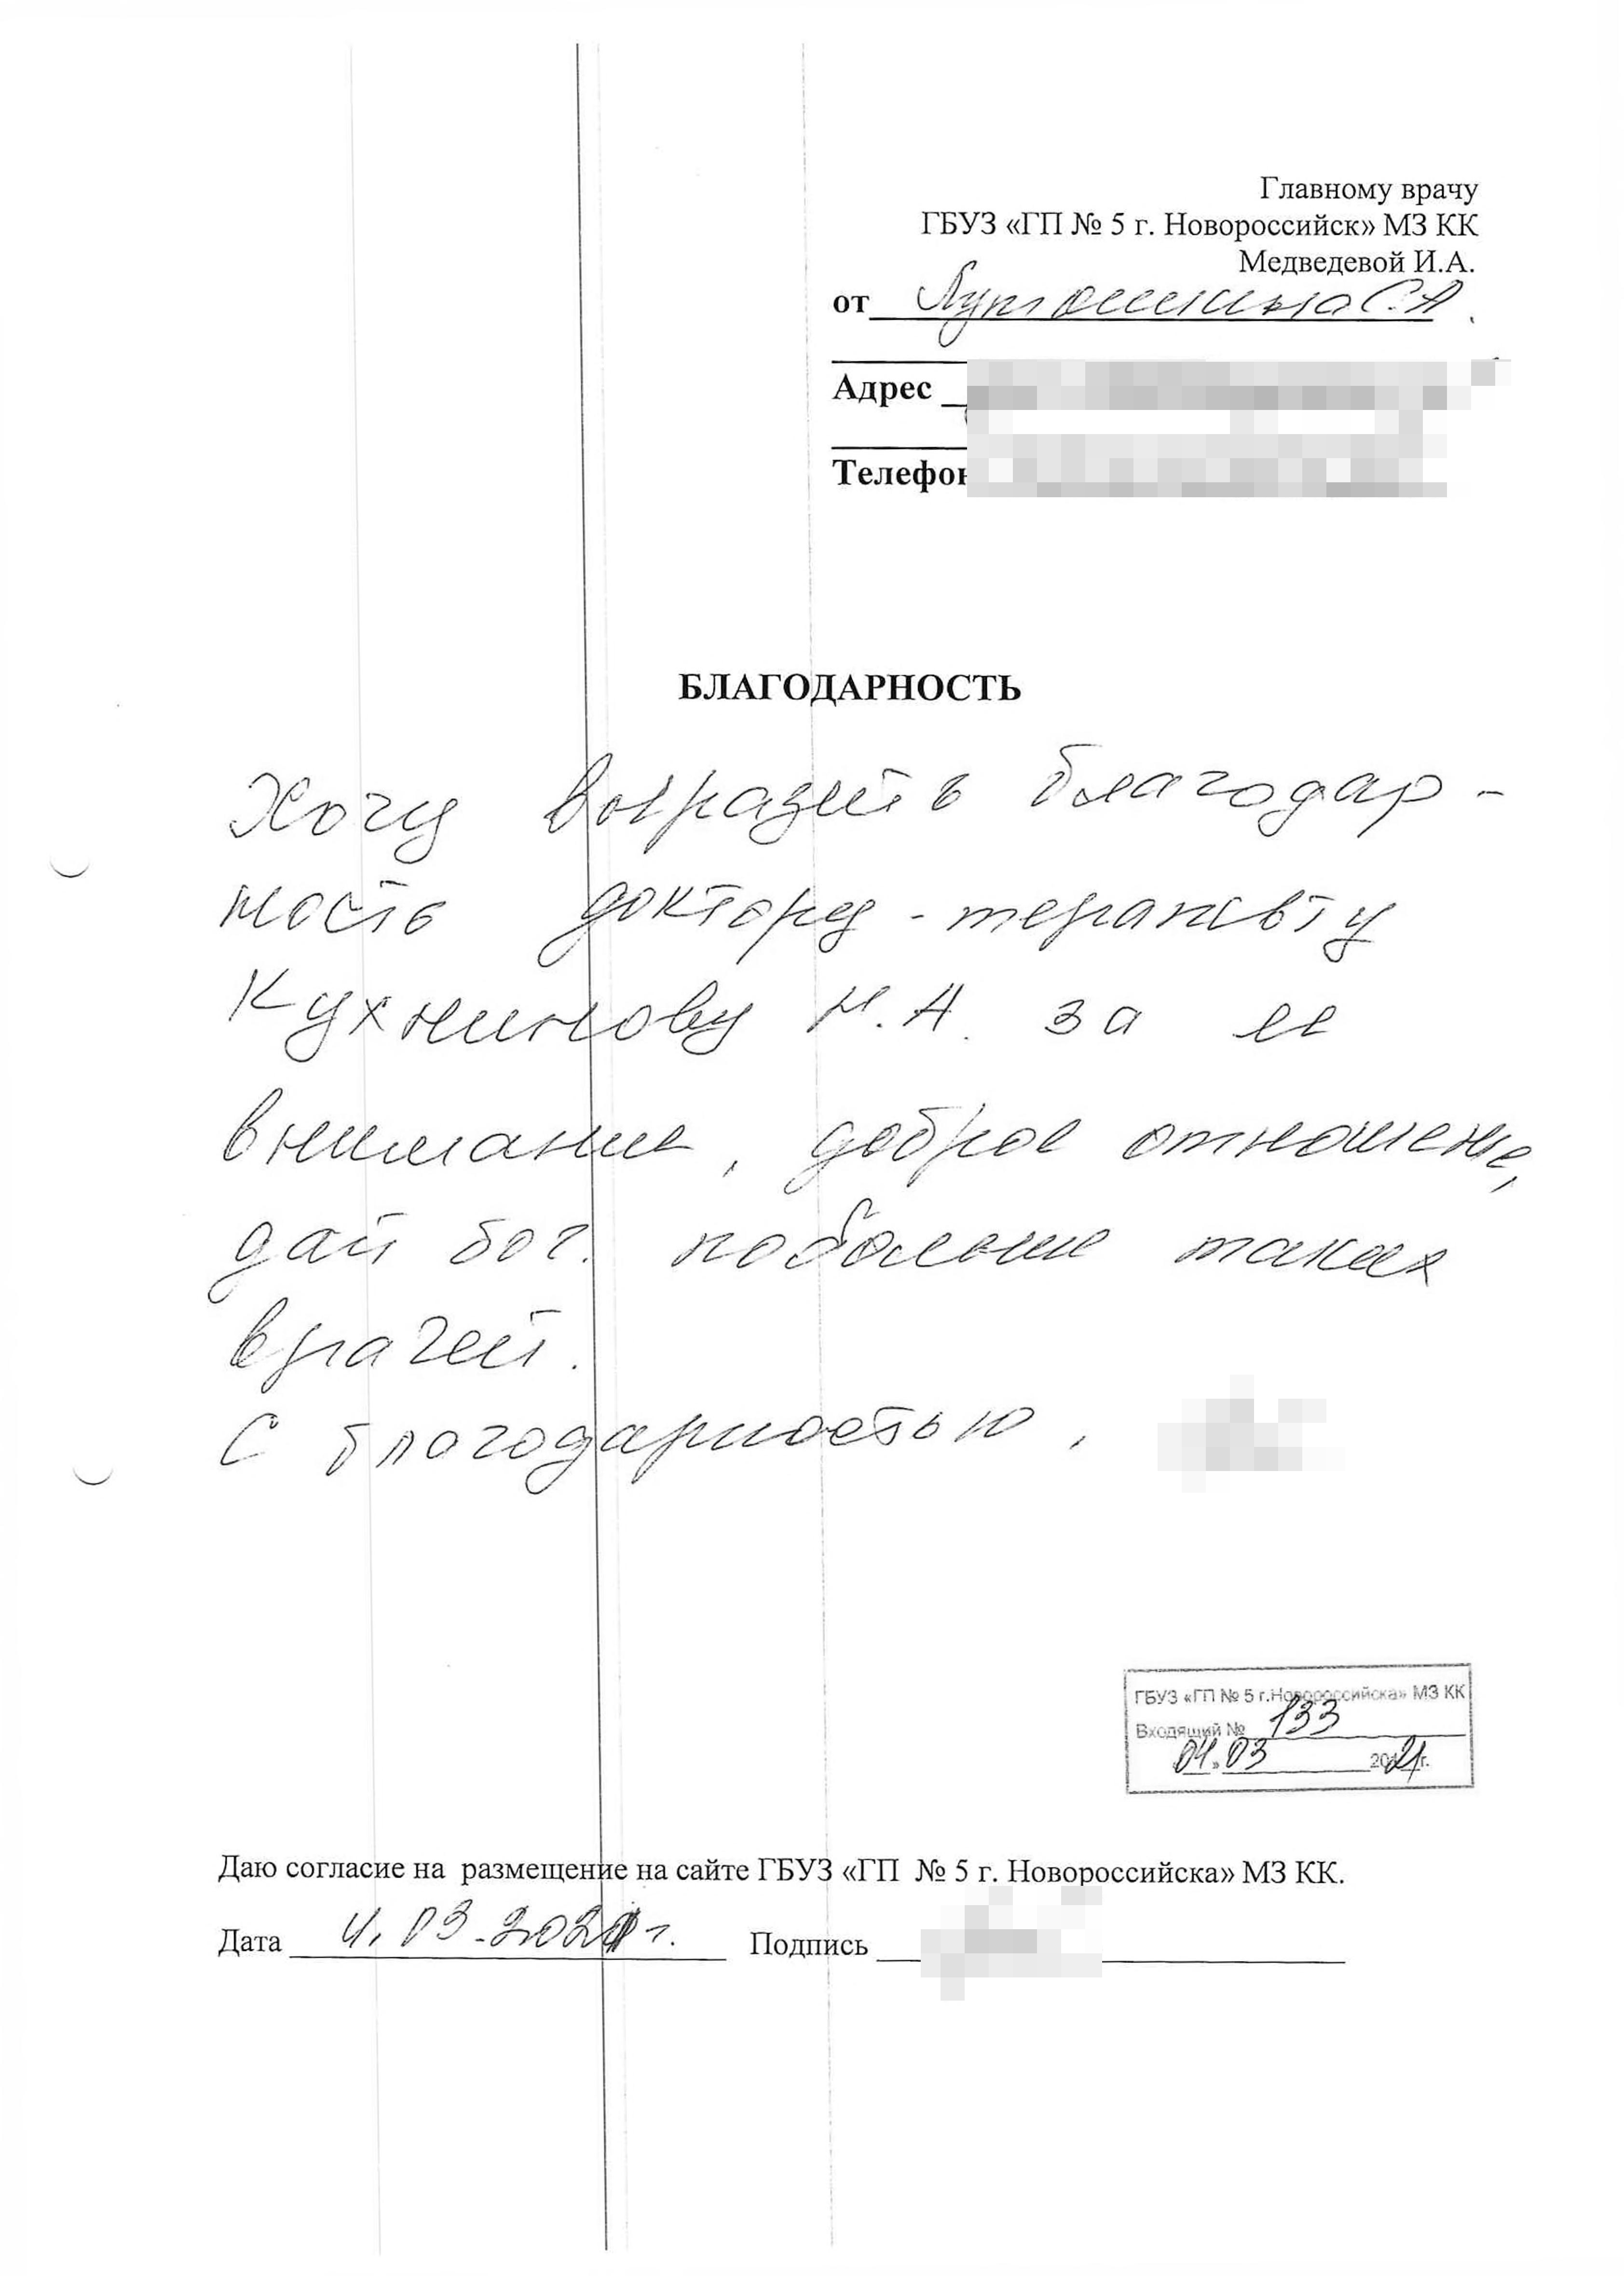 Главному врачу
ГБУЗ «ГП № 5 г. Новороссийск» МЗ КК
Медведевой И.А.
от С.А
Адрес
Телефон
БЛАГОДАРНОСТЬ
Хочу выразить благодар-
ность доктору-терапевту
Н.А. за ее
внимание, доброе отношение,
дай бог. побольше таких
врачей.
С благодарностью,
ГБУЗ «ГП № 5 г.Новороссийска» МЗ КК
Входящий № 133
04.03 2021г.
Даю согласие на размещение на сайте ГБУЗ «ГП № 5 г. Новороссийска» МЗ КК.
Дата 4.03.2021г. Подпись